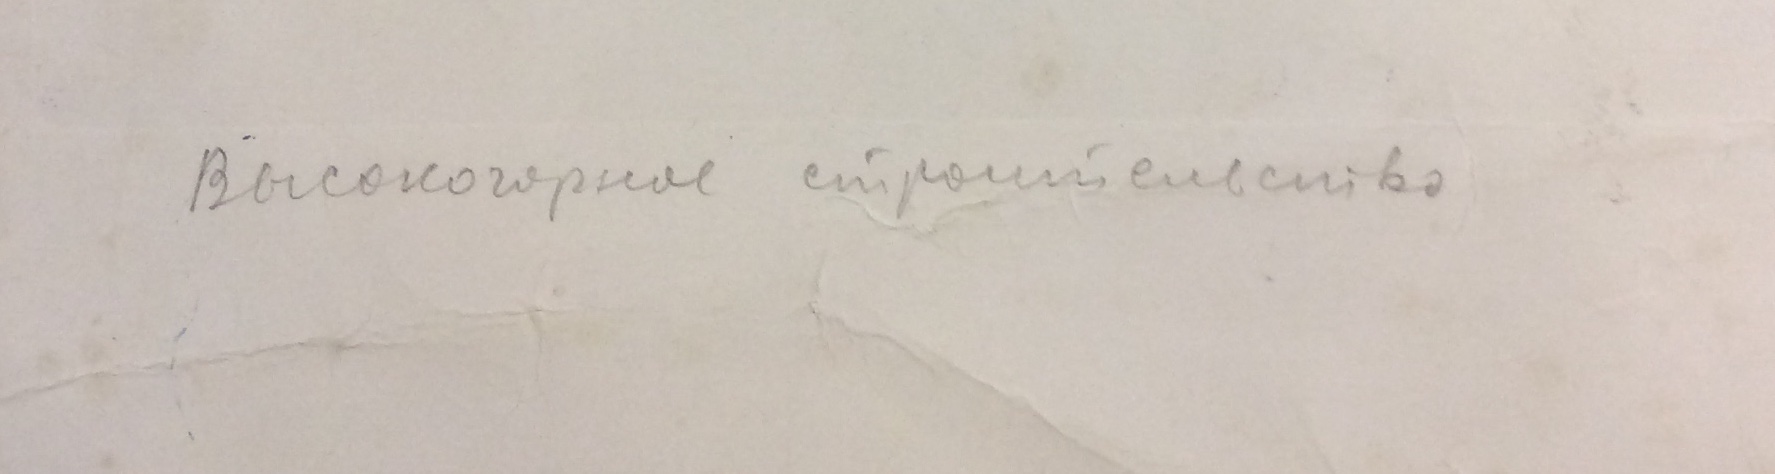 Высокогорное строительство